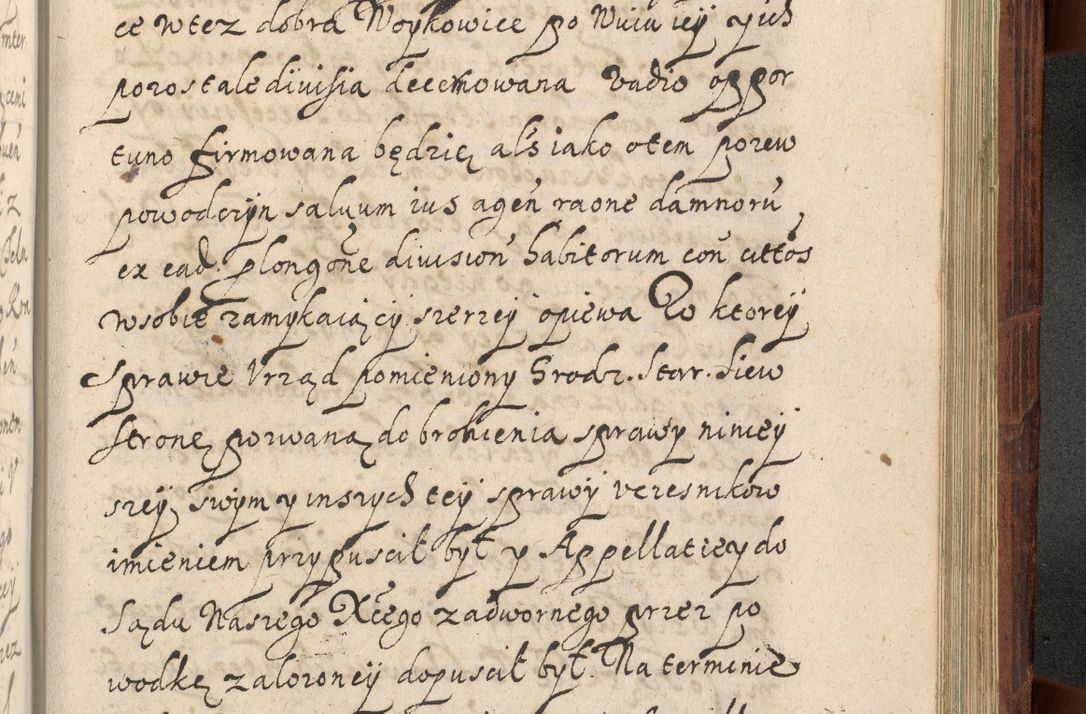 ce wtez dobra Woykowice po Wuiu iey y ich
pozostale divisia decemowana vadio oppor
tuno firmowana będzię als iako o tem pozew
powodczyn salvum ius agen raone damnorũ
ex ead. plongone division habitorum con cittos
w sobie zamykaiący szerzey opiewa Po ktorey
sprawie Vrząd pomieniony Grodz. Star. Siew
stronę pozwaną do bronienia sprawy niniey
szey, swym y inszych tey sprawy vczesnikow
imieniem przypuscił był y Appellatiey do
Sądu Naszego Xcego zadwornego przez po
wodkę założoney dopuscił był. Na terminie